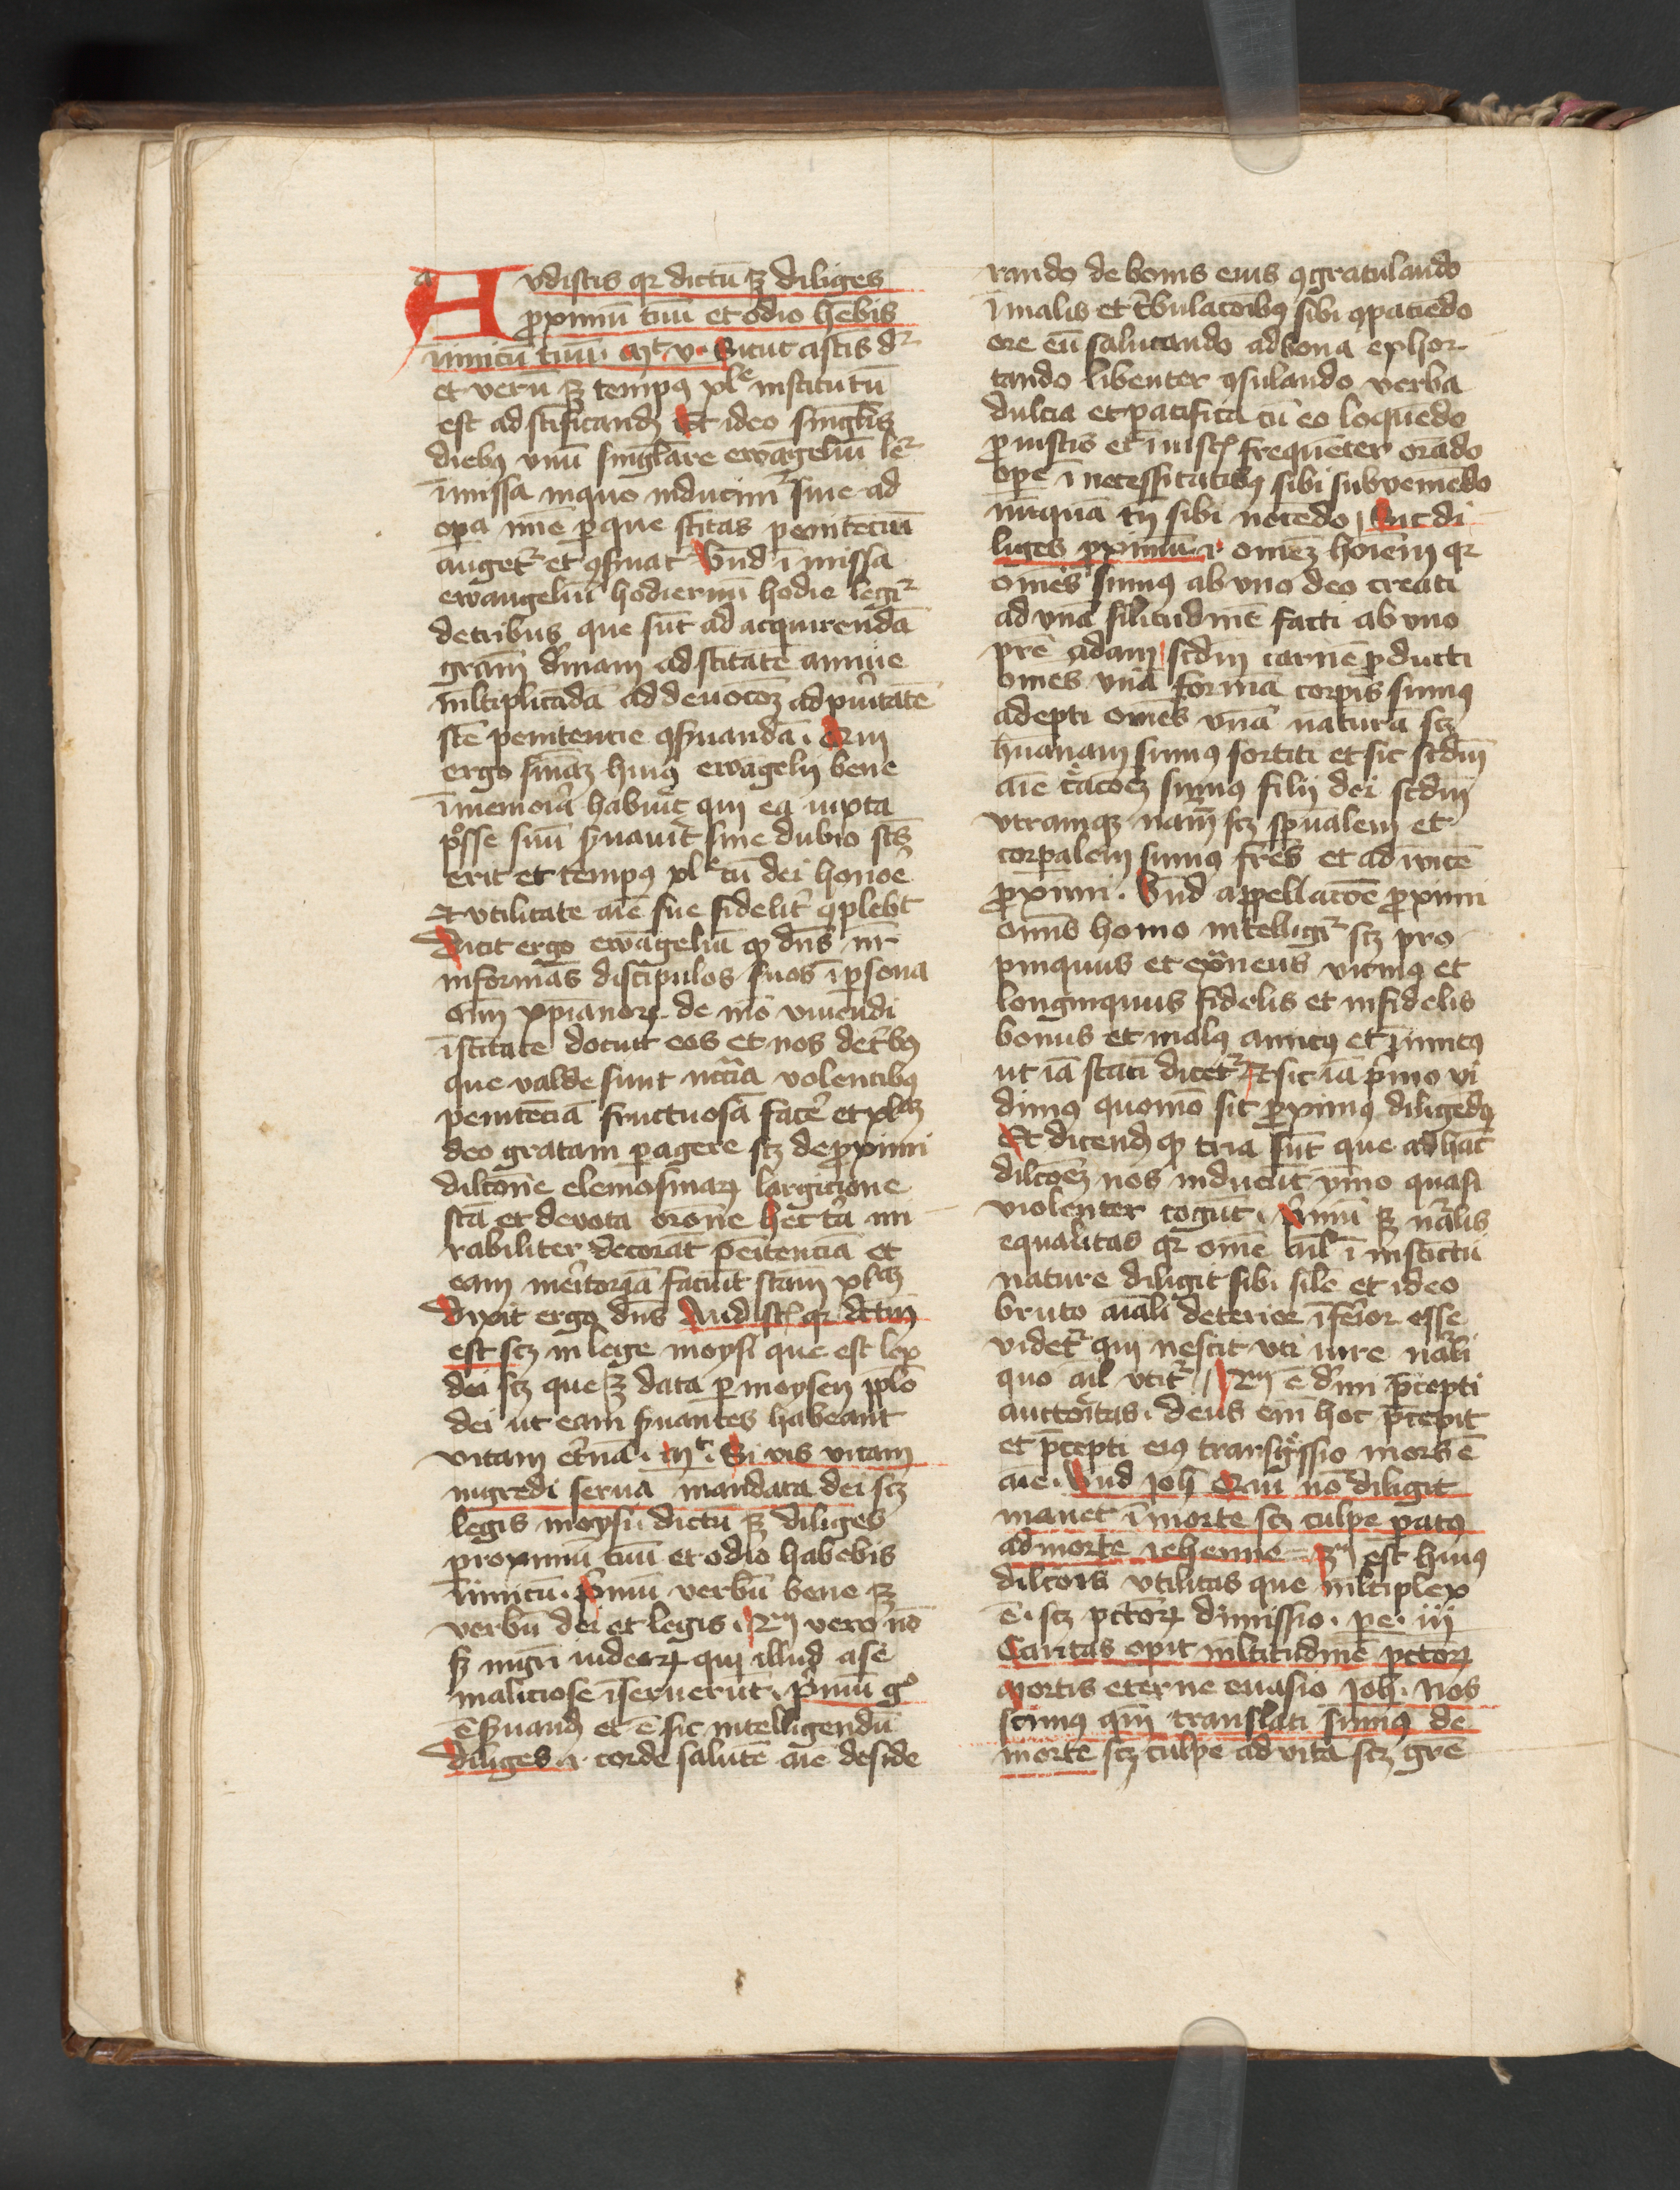 Avdistis qr dictū ē diliges
ꝓximū tuū et odio hēbis
īimicū tuū. Mt v. Sicut astis dr̄
et verū ē tempꝰ xlᵉ institutū
est ad sc̄ificandꝫ Et ideo singl̄is
diebꝫ vnū singlare ewāgeliū lr̄
ī missa in quo inducimr̄ siue ad
opa mīe ꝑ que sc̄itas penitēciū
auget᷑ et ꝯseruat᷑ Vnd̄ ī missa
ewangeliū hodiernū hodie legi᷑
de tribus que sūt ad acquirendā
grām d̄inam ad sc̄itatē anime
ml̄tiplicādā ad deuocōꝫ ad puritatē
sc̄e penitencie ꝯseruandā. Qui
ergo sn̄iaꝫ huiꝰ ewāgelij bene
ī memoria habuit᷑ qui ea iuxta
posse suū seruauit᷑ sine dubio sc̄ūs
erit et tempꝰ xlᵉ cū dei honoē
Et vtilitate aīe sue fidelit᷑ ꝯplebit
Dicit ergo ewāgeliū qꝫ dn̄s nr̄
informās discipulos suos ī ꝑsona
oīm xp̄ianoꝝ de mō viuendi
ī sc̄itate docuit eos et nos de tribꝫ
que valde sunt nc̄c̄ia volentibꝫ
penitēciā fructuosā facē et xlᵃᵐ
deo gratam ꝑagere scꝫ de ꝓximi
dilcōne elemosinaꝝ largicione
sc̄a et devota orōne hec tria mi
rabiliter decorāt penitenciā et
eam meritoriā faciūt sc̄am xlᵃᵐ
Dixit ergo dn̄s Audistꝭ qr dictū
est scꝫ in lege moysi que est lex
dei scꝫ que ē data ꝑ moysen pplō
dei ut eam seruantes habeant
vitam et̄nā. Mt. Si vis vitam
ingredi serua mandata dei scꝫ
legis moysi dictū ē diliges
proximū tuū et odio habebis
īimicū. Primū verbū bene ē
verbū dei et legis. 2ᵐ vero nō
sꝫ nigri iudeoꝝ qui illud a se
maliciose īseruerūt. Primū gᵒ
ē seruandꝫ et ē sic intelligendū
diliges .i. corde salutē aīe deside
rando de bonis eius ꝯgratulando
ī malis et t̄bulacōibꝫ sibi ꝯpaciēdo
ore eū salutando ad bona exhor
tando libenter ꝯsulando verba
dulcia et pacifica cū eo loquēdo
ꝓ iustis et ī iustꝭ frequēter orādo
ope ī necessitatibꝫ sibi subveniēdo
nūquā tn̄ sibi nocēdo Sic di
liges ꝓximū .i. omēꝫ hoīem qr
omēs sumꝰ ab vno deo creati
ad vnā silitudinē facti ab vno
pr̄e adam scd̄m carnē ꝓducti
omēs vnā formā corpis sumꝰ
adepti omēs vnā naturā scꝫ
hūanam sumꝰ sortiti et sic scd̄m
aīe c̄acōeꝫ sumꝰ filij dei scd̄m
vtramqꝫ nām scꝫ sp̄ualem et
corꝑalem sumꝰ fr̄es et ad īuicē
ꝓximi. Vnd̄ appellacōe ꝓximi
omīs homo intelligi᷑ scꝫ pro
pinquus et ext̄neus vicinꝰ et
longinquus fidelis et infidelis
bonus et malꝰ amicꝰ et īimicꝰ
ut iā stati dicet᷑ Et sic iā p̄mo vi
dimꝰ quomō sit ꝓximꝰ diligēdꝰ
Et dicendꝫ qꝫ tria sūt que ad hāc
dilcōeꝫ nos inducūt ymo quasi
violenter cogūt. Primū ē nr̄alis
equalitas qr omē aīl ī instīctu
nature diligit sibi silē et ideo
bruto aīali deterior īferior esse
videt᷑ qui nescit vti iure nāli
quo aīl vtit᷑ 2ᵐ ē d̄ini p̄cepti
auctoritas. Deus em̄ hoc p̄cepit
et p̄cepti eiꝰ transgr̄ssio mors ē
aīe. Vnd̄ Joh̄ Qui nō diligit
manet ī morte scꝫ culpe patꝰ
ad morte iehenne 3ᵐ est huiꝰ
dilcōis vtilitas que ml̄tiplex
ē. scꝫ pctōꝝ dimissio. pe. iiij
Caritas opit ml̄titudinē pctōꝝ
Mortis eterne euasio Joh̄. Nos
scimꝰ qm̄ translati sumꝰ de
morte scꝫ culpe ad vitā scꝫ gr̄e